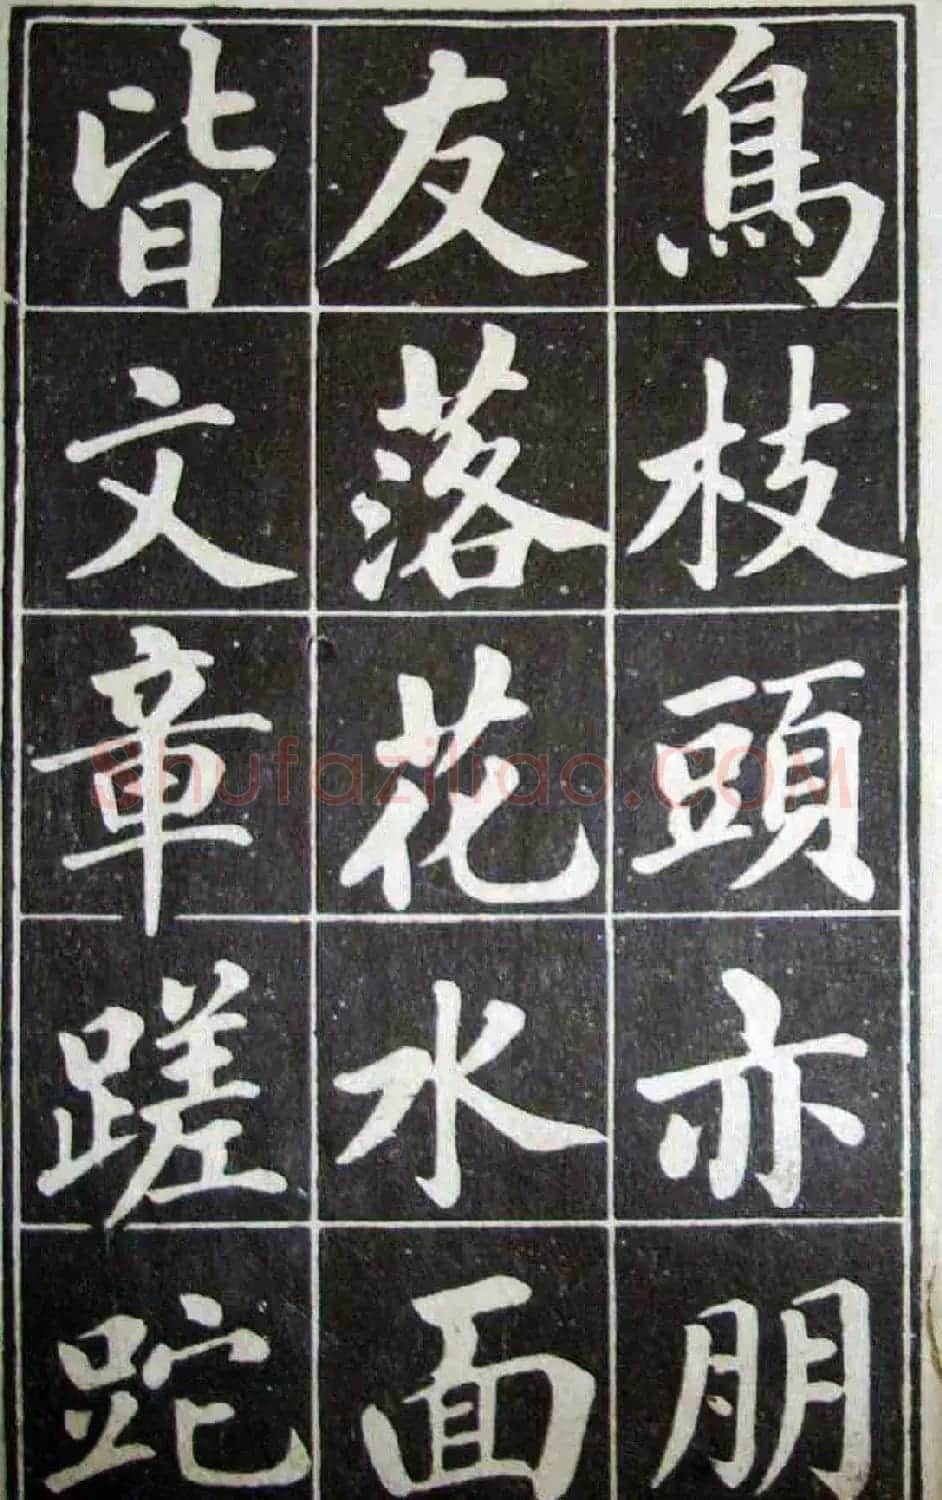 鳥枝頭亦朋
友落花水面
皆文章蹉跎
Shufaziliao.com